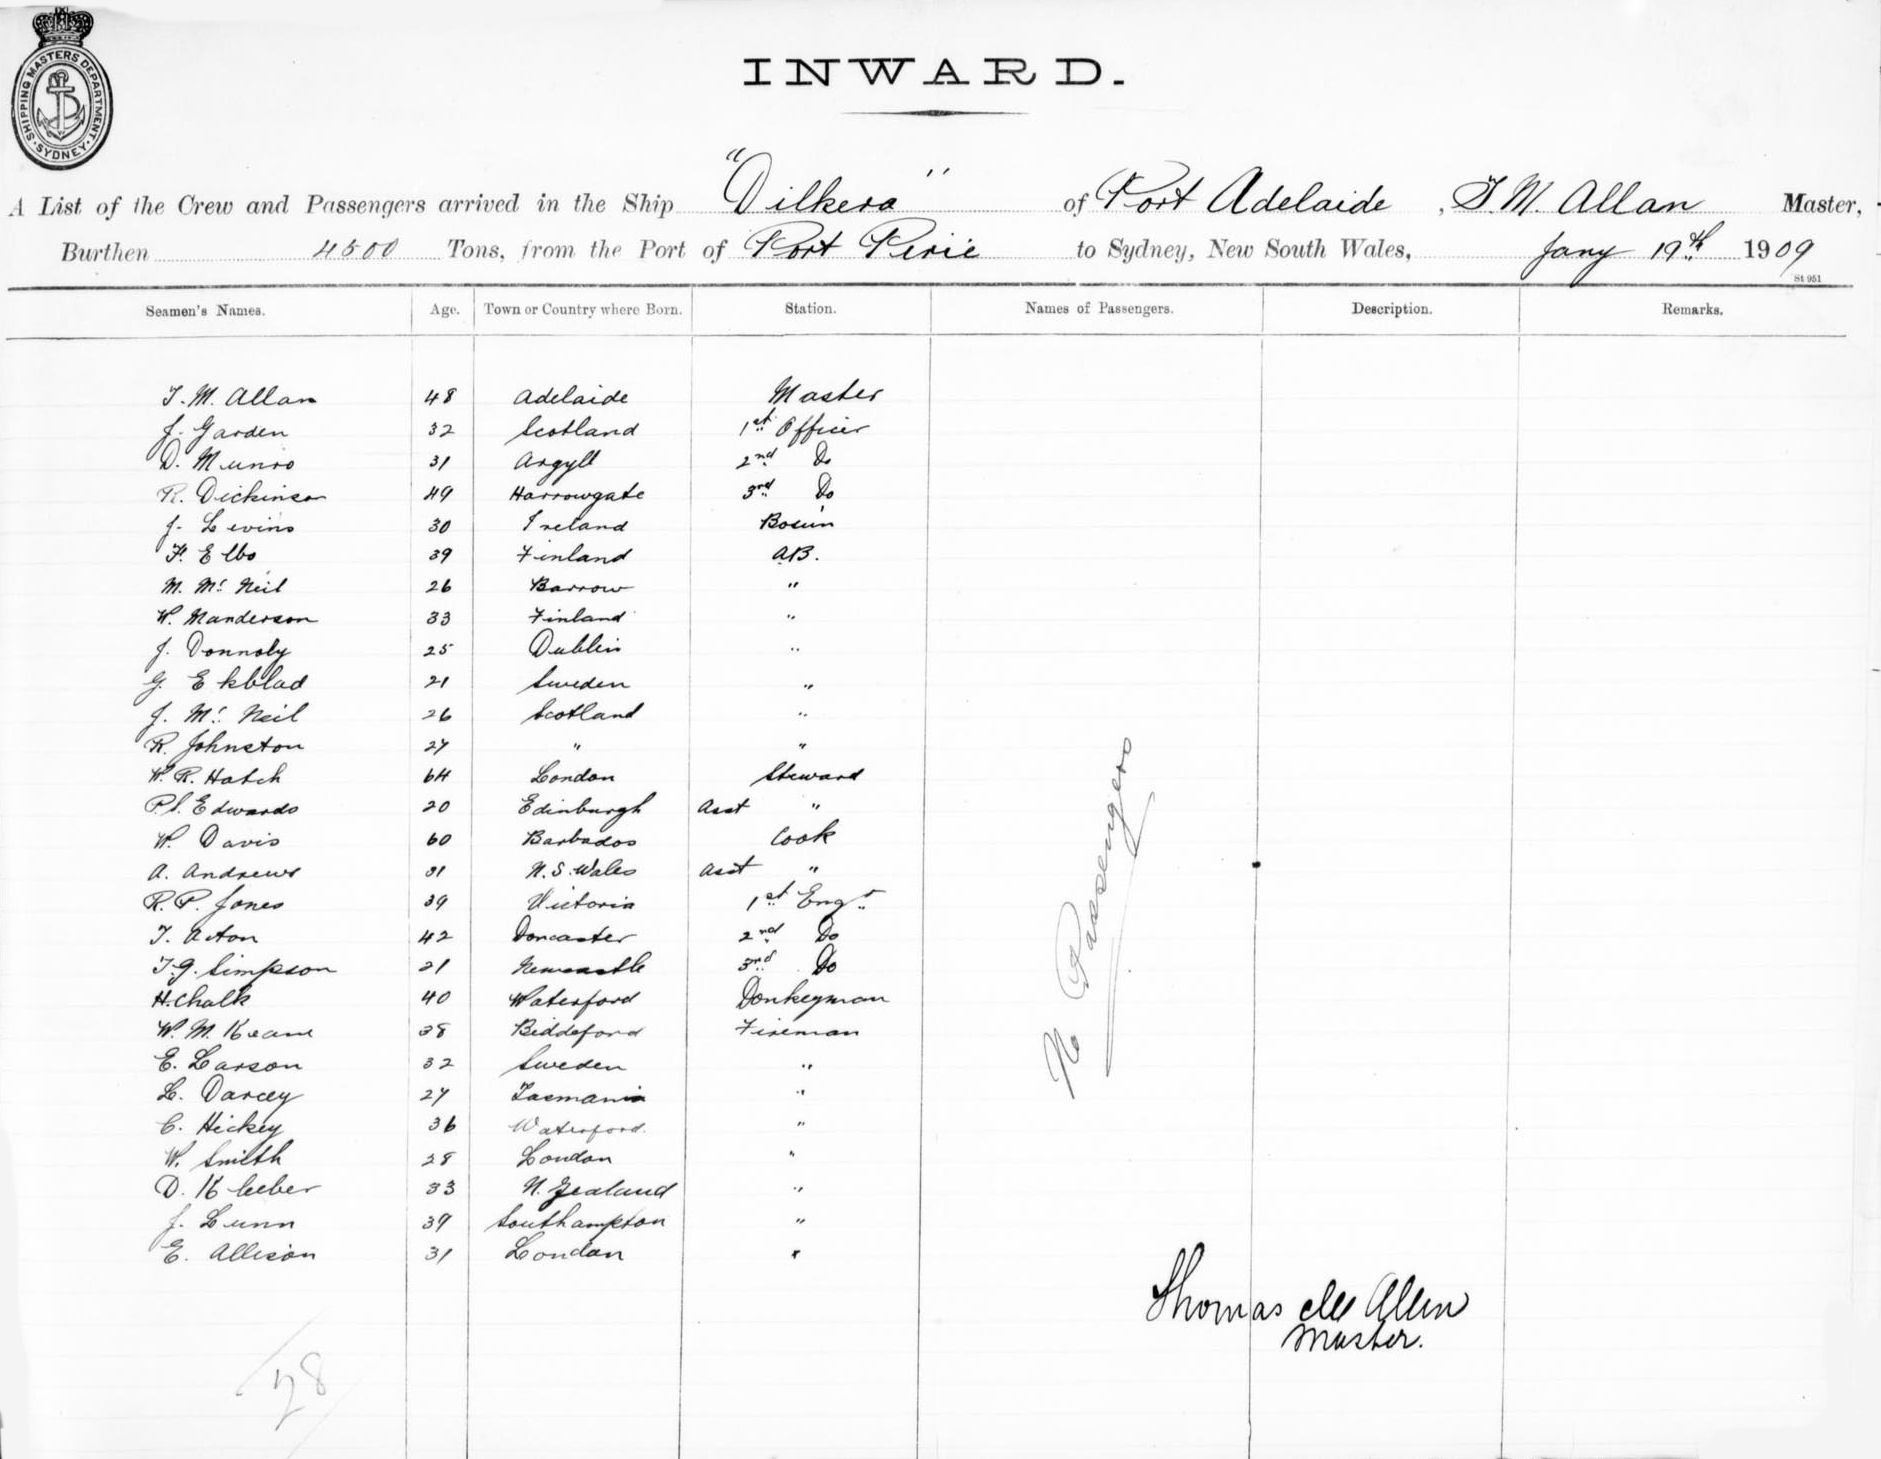 SHIPPING MASTERS DEPARTMENT. SYDNEY.
INWARD.
A List of the Crew and Passengers arrived in the Ship "Dilkera" of Port Adelaide, T. M. Allan Master,
Burthen 4500 Tons, from the Port of Port Pirie to Sydney, New South Wales, Jany 19th 1909
St 951
Seamen's Names. Age. Town or Country where Born. Station. Names of Passengers. Description. Remarks.
T. M. Allan 48 Adelaide Master
J. Garden 32 Scotland 1st Officer
D. Munro 31 Argyll 2nd Do
R. Dickinson 49 Harrowgate 3rd Do
J. Levins 30 Ireland Bosun
F. Elbo 39 Finland AB.
M. Mc Neil 26 Barrow "
W. Manderson 33 Finland "
J. Donnoly 25 Dublin "
G. Ekblad 21 Sweden "
J. Mc Neil 26 Scotland "
R. Johnston 27 " "
W. R. Hatch 64 London Steward
P. S. Edwards 20 Edinburgh Asst "
W. Davis 60 Barbados Cook
A. Andrews 31 N. S. Wales Asst "
R. P. Jones 39 Victoria 1st Engr
T. Acton 42 Doncaster 2nd Do
T. G. Simpson 21 Newcastle 3rd Do
H. Chalk 40 Waterford Donkeyman
W. M. Keane 38 Biddeford Fireman
E. Larson 32 Sweden "
L. Darcey 27 Tasmania "
C. Hickey 36 Waterford. "
W. Smith 28 London "
D. Kleeber 33 N. Zealand "
J. Lunn 39 Southampton "
E. Allison 31 London "
No Passengers
Thomas M Allan
Master.
28